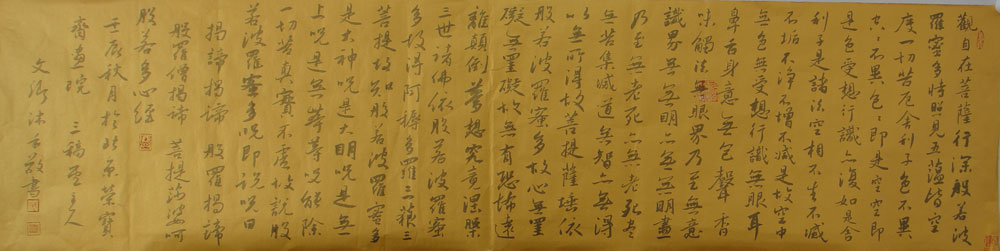 觀自在菩薩行深般若波
羅蜜多時照見五蘊皆空
度一切苦厄舍利子色不異
空々不異色々即是空空即
是色受想行識亦復如是舍
利子是諸法空相不生不滅
不垢不淨不增不減是故空中
無色無受想行識無眼耳
鼻舌身意無色聲香
味觸法無眼界乃至無意
識界無無明亦無無明盡
乃至無老死亦無老死盡
無苦集滅道無智亦無得
以無所得故菩提薩埵依
般若波羅蜜多故心無罣
礙無罣礙故無有恐怖遠
離顛倒夢想究竟涅槃
三世諸佛依般若波羅蜜
多故得阿耨多羅三藐三
菩提故知般若波羅蜜多
是大神咒是大明咒是無
上咒是無等等咒能除
一切苦真實不虛故說般
若波羅蜜多咒即說咒曰
揭諦揭諦 般羅揭諦
般羅僧揭諦 菩提薩婆呵
般若多心經
壬辰秋月於北京榮寶
齋畫院 三稿堂主人
沐手敬書